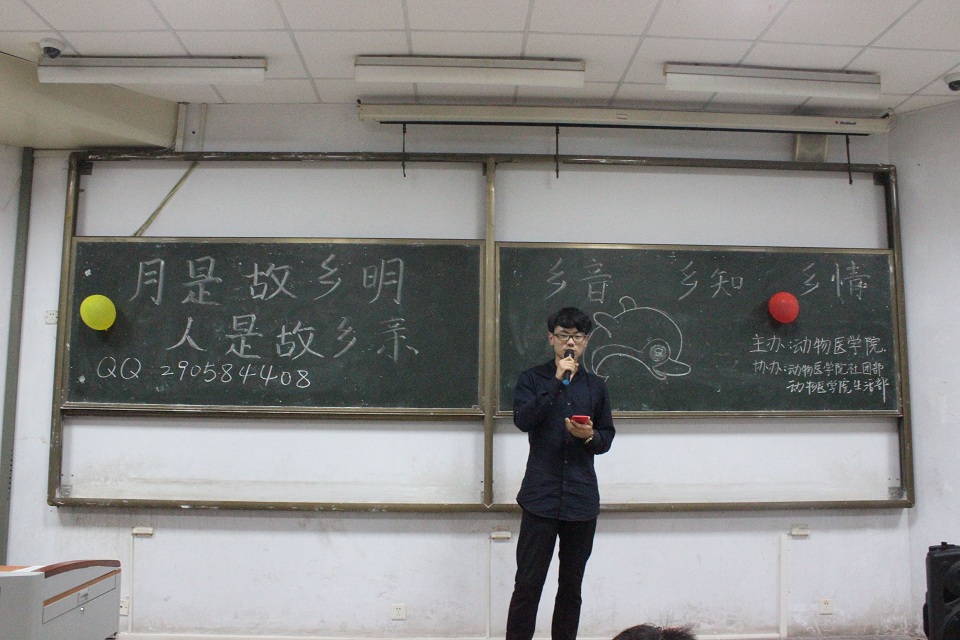 月是故乡明
人是故乡亲
QQ 290584408
乡音 乡知 乡情
主办:动物医学院
协办:动物医学院社团部
动物医学院生活部